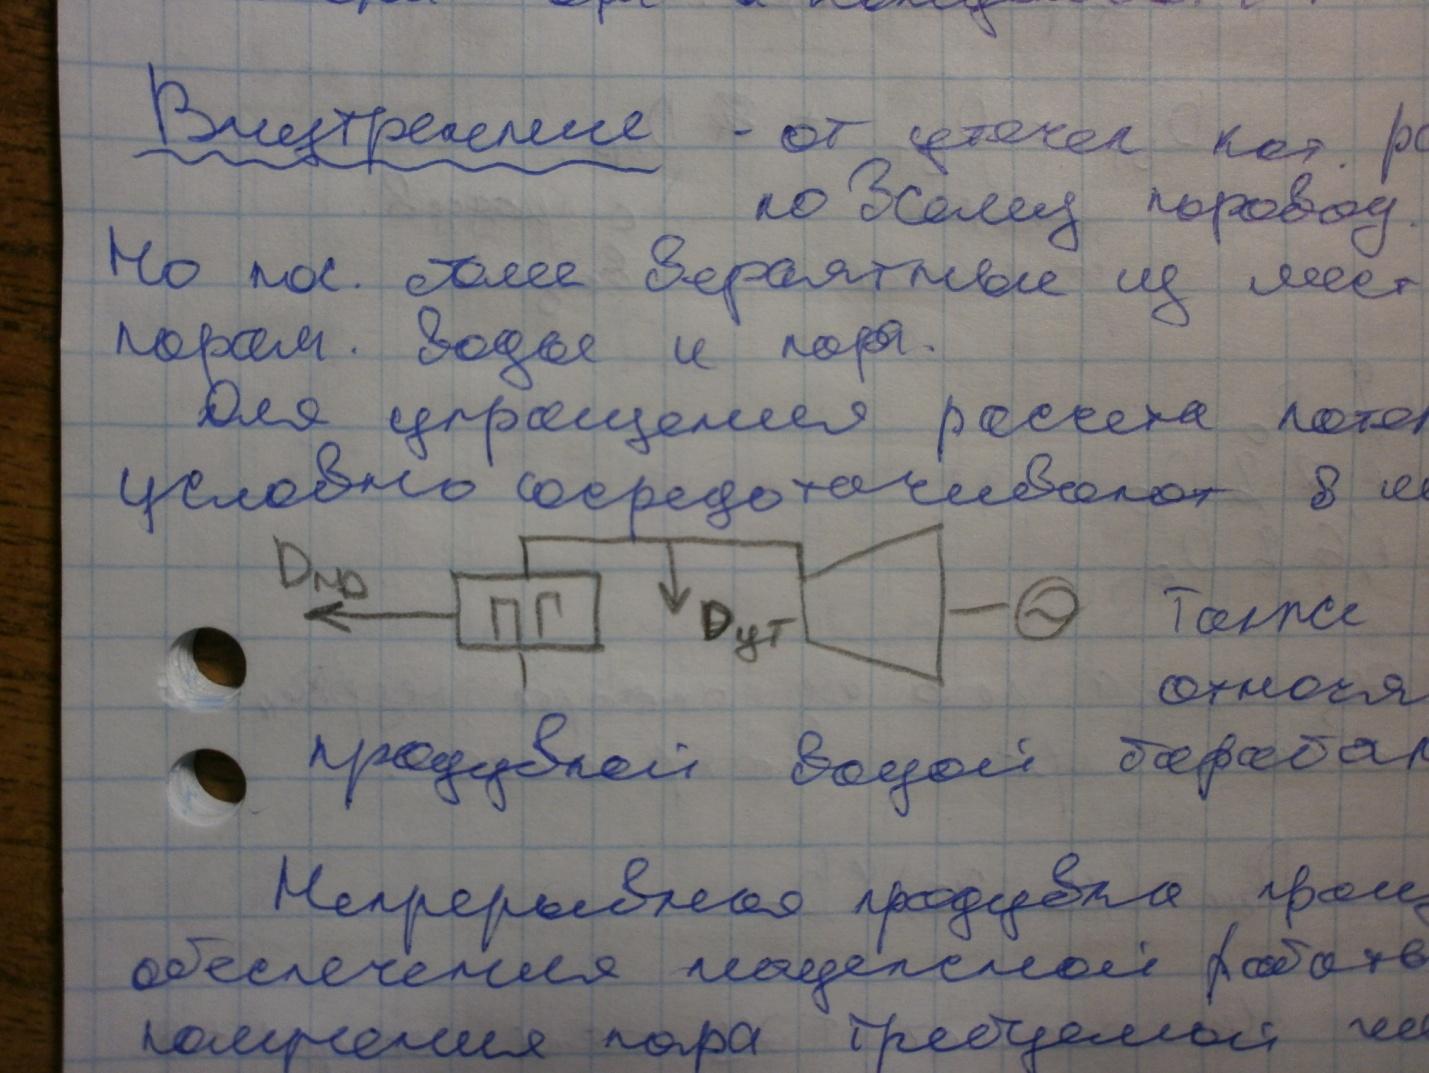 Внутренние - от утечек кот. ра
по Всему паровод.
Но нос. более вероятные из мест
парам. воды и пара.
Для упрощения расчета поте
условно сосредотачивают в
Dпр ПГ Dут ~ Также
относя
продувкой водой барабан
Непрерывная продувка
обеспечения надежной работы
получения пара требуемой